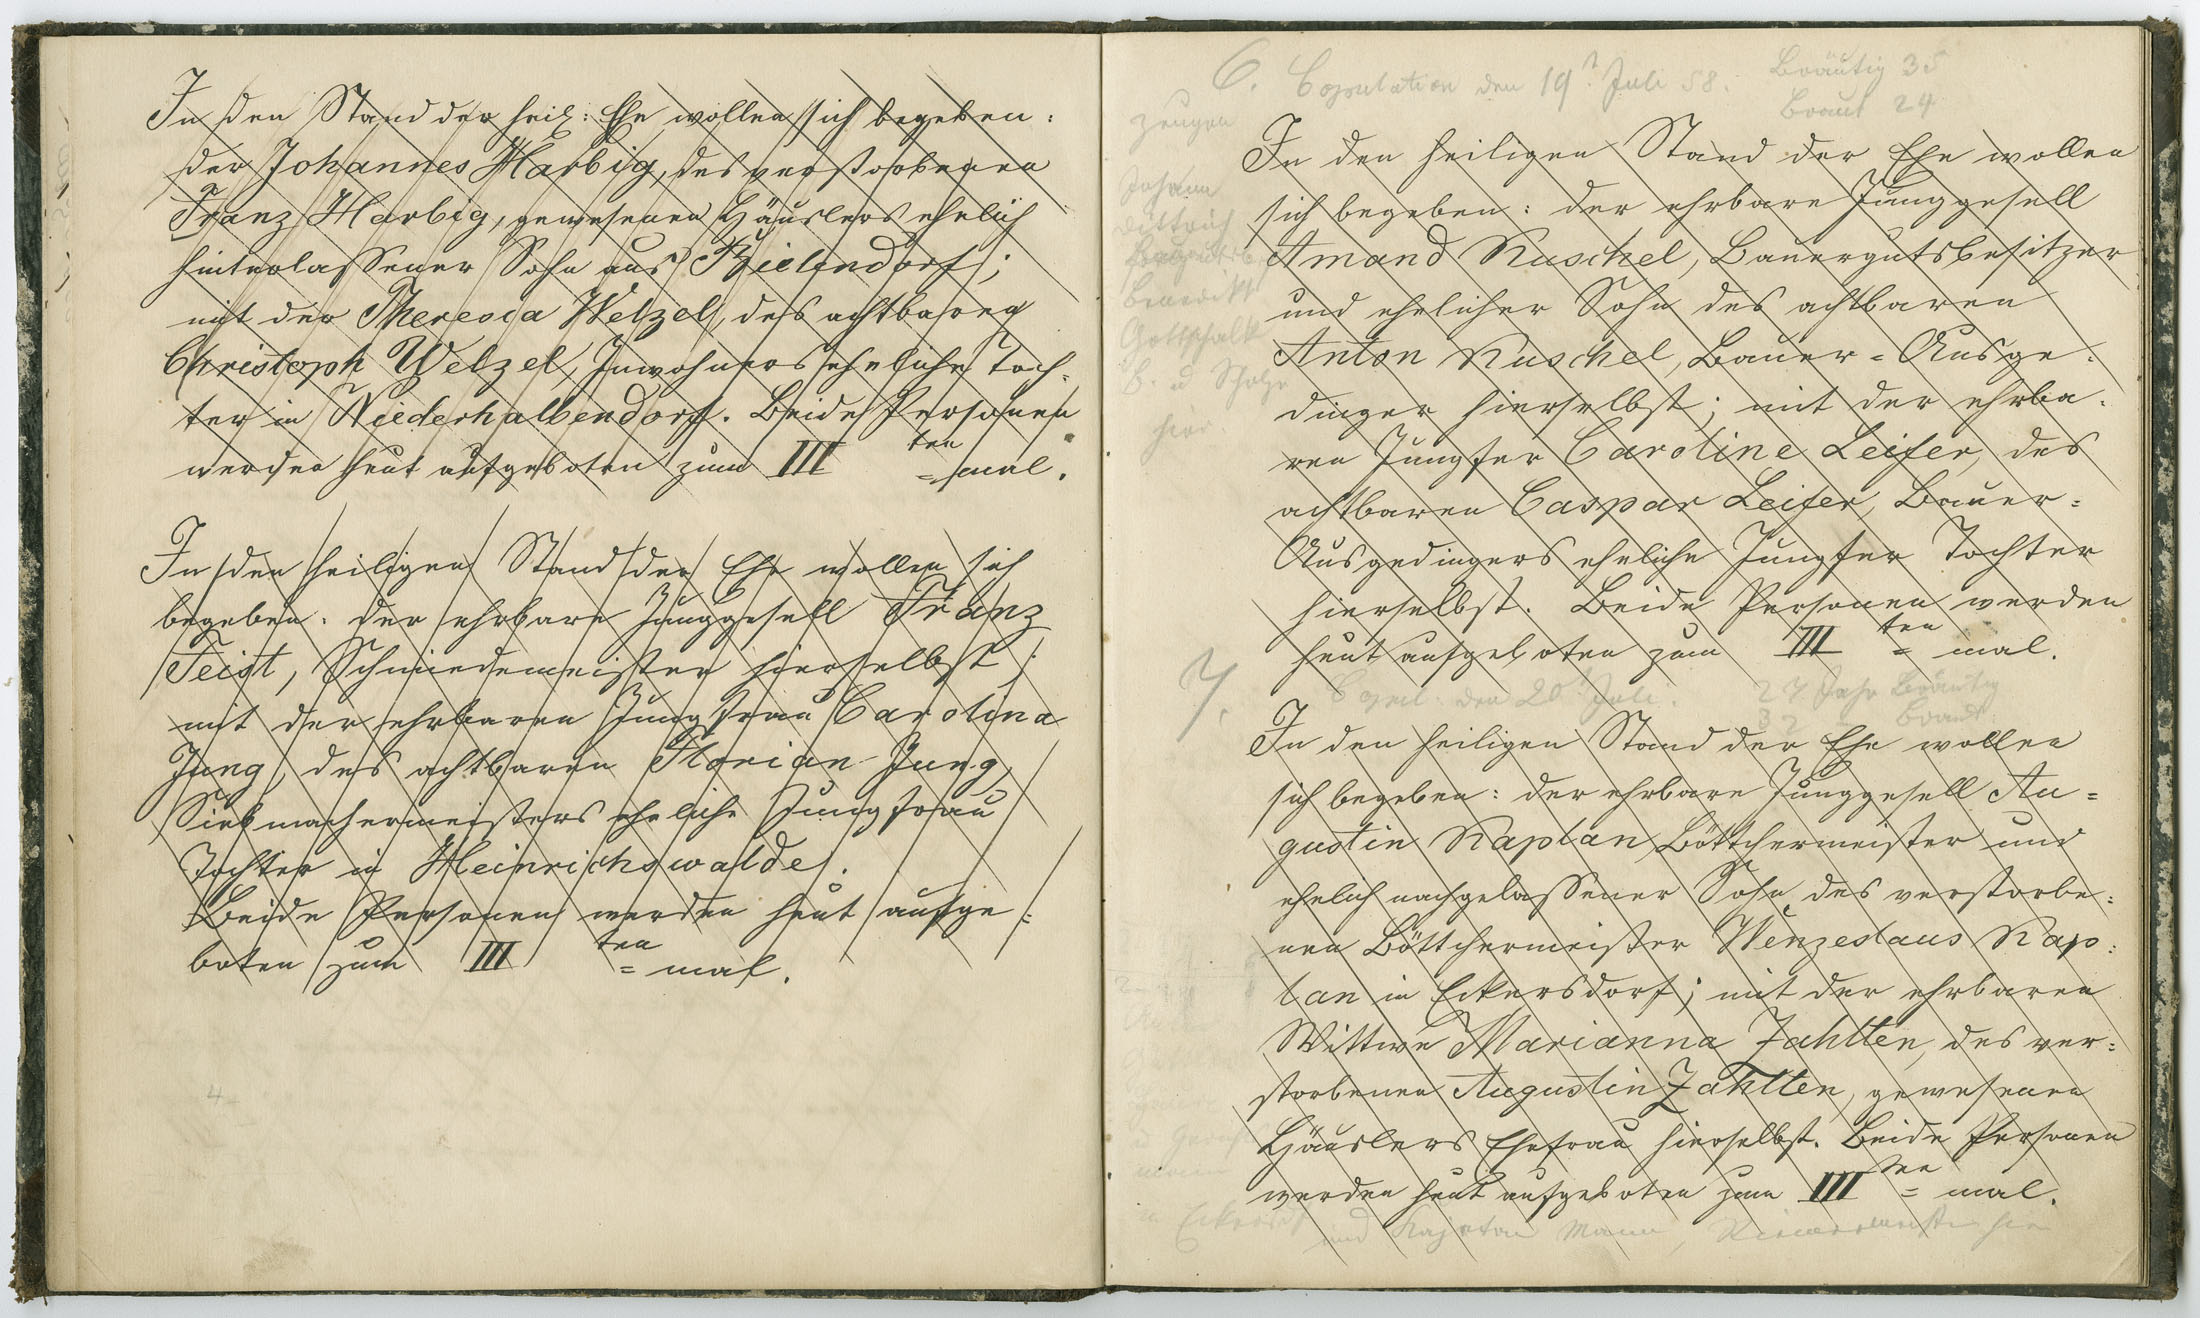 In den Stand der heil: Ehe wollen sich begeben:
der Johannes Harbig, des verstorbenen
Franz Harbig, gewesenen Häuslers ehelich
hinterlassener Sohn aus Bielendorf;
mit der Theresia Welzel, des achtbaren
Christoph Welzel, Inwohners eheliche Toch-
ter in Niederhalbendorf. Beide Personen
werden heut aufgeboten zum III ten = mal.
In den heiligen Stand der Ehe wollen sich
begeben: der ehrbare Junggesell Franz
Teist, Schmiedemeister hierselbst;
mit der ehrbaren Jungfrau Carolina
Jung, des achtbaren Florian Jung,
Siebmachermeisters eheliche Jungfrau
Tochter in Heinrichswalde.
Beide Personen werden heut aufge=
boten zum III ten = mal.
4
6. Copulation den 19t Juli 58. Bräutig 35
Braut 24
Zeugen
Johann
Dittrich
Benedikt
Gottschalk
B. u Scholze
hier.
In den heiligen Stand der Ehe wollen
sich begeben: der ehrbare Junggesell
Amand Ruschel, Bauergutsbesitzer
und ehelicher Sohn des achtbaren
Anton Ruschel, Bauer=Ausge=
dinger hierselbst; mit der ehrba=
ren Jungfer Caroline Leifer, des
achtbaren Caspar Leifer, Bauer=
Ausgedingers eheliche Jungfer Tochter
hierselbst. Beide Personen werden
heut aufgeboten zum III ten = mal.
7. Copul. den 20t Juli. 27 Jahr Bräutig
32 – Braut
In den heiligen Stand der Ehe wollen
sich begeben: der ehrbare Junggesell Au=
gustin Kaplan, Böttchermeister und
ehelich nachgelassener Sohn des verstorbe=
nen Böttchermeister Wenzeslaus Kap=
lan in Eckersdorf; mit der ehrbaren
Wittwe Marianna Zahlten, des ver=
storbenen Augustin Zahlten, gewesenen
Häuslers Ehefrau hierselbst. Beide Personen
werden heut aufgeboten zum III ten = mal.
in Eckersdf und Kajetan Mann, hier